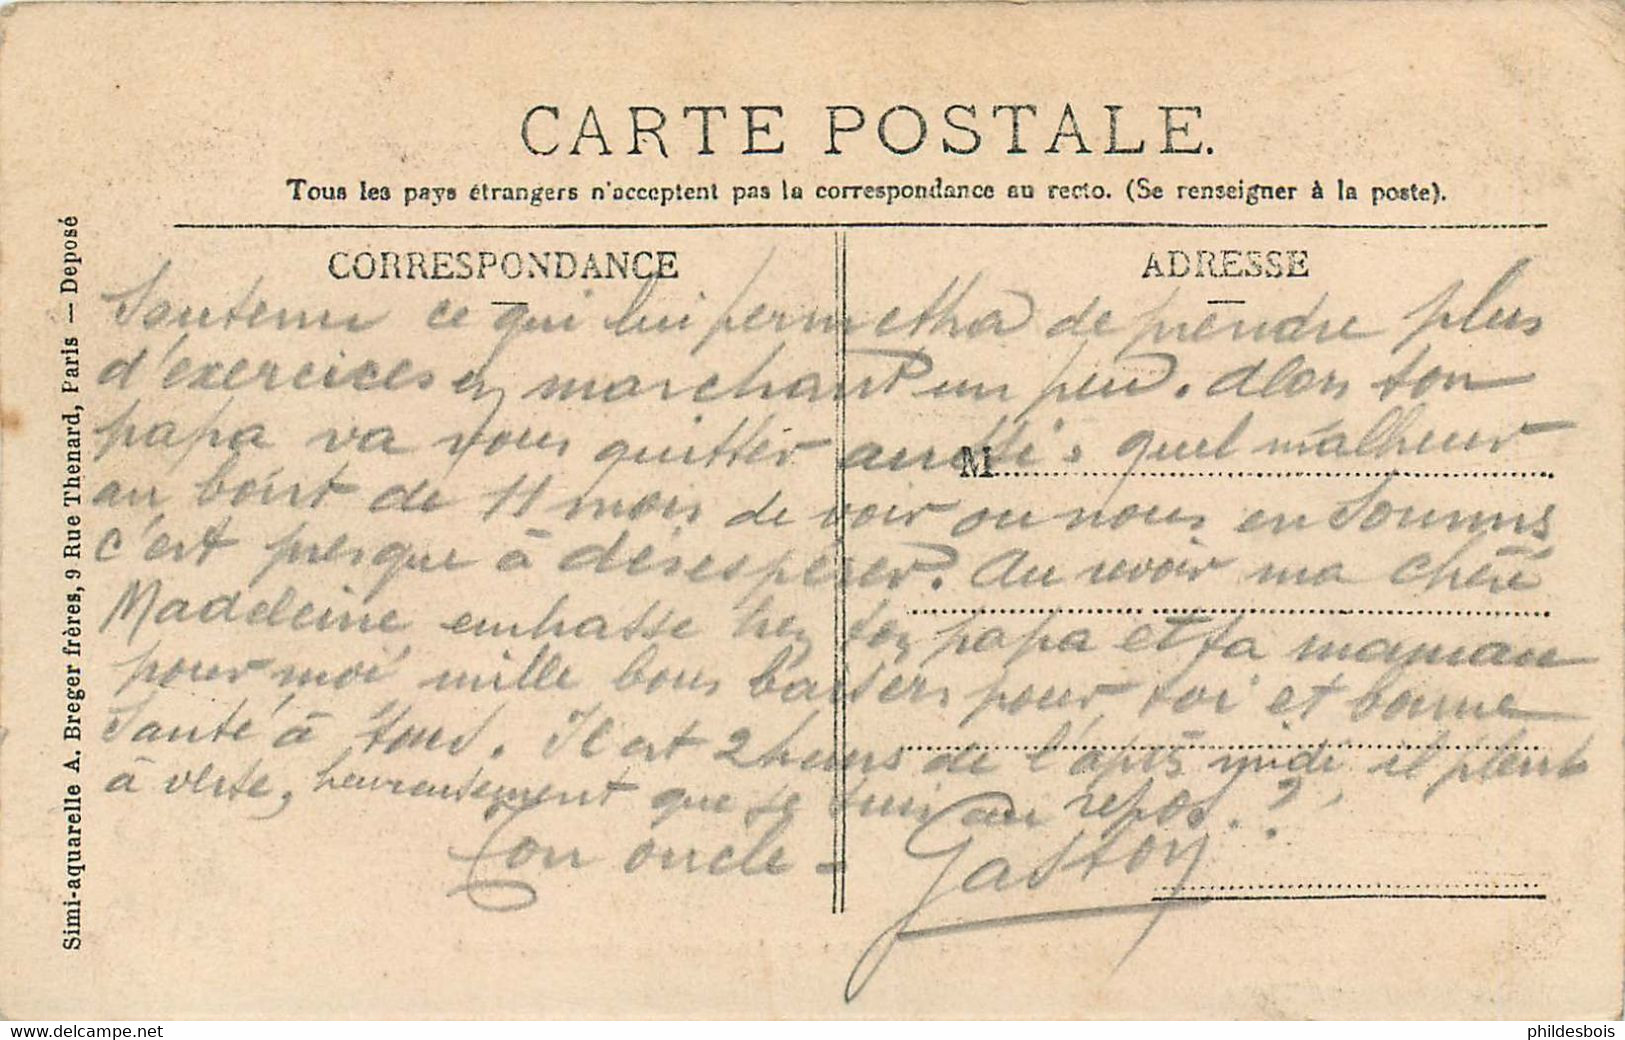 CARTE POSTALE.
Tous les pays étrangers n'acceptent pas la correspondance au recto. (Se renseigner à la poste).
CORRESPONDANCE
ADRESSE
M
Soutenu ce qui lui permettra de prendre plus
d'exercices en marchant un peu. Alors ton
papa va vous quitter aussi. quel malheur
au bout de 11 mois de voir où nous en sommes
c'est presque à désespérer. Au revoir ma chère
Madeleine embrasse ton papa et ta maman
pour moi mille bons baisers pour toi et bonne
Santé à tous. Il est 2 heures de l'après midi il pleut
à verse, heureusement que je suis au repos. ?
Ton oncle = Gaston
Simi-aquarelle A. Breger frères, 9 Rue Thenard, Paris — Deposé
www.delcampe.net
phildesbois